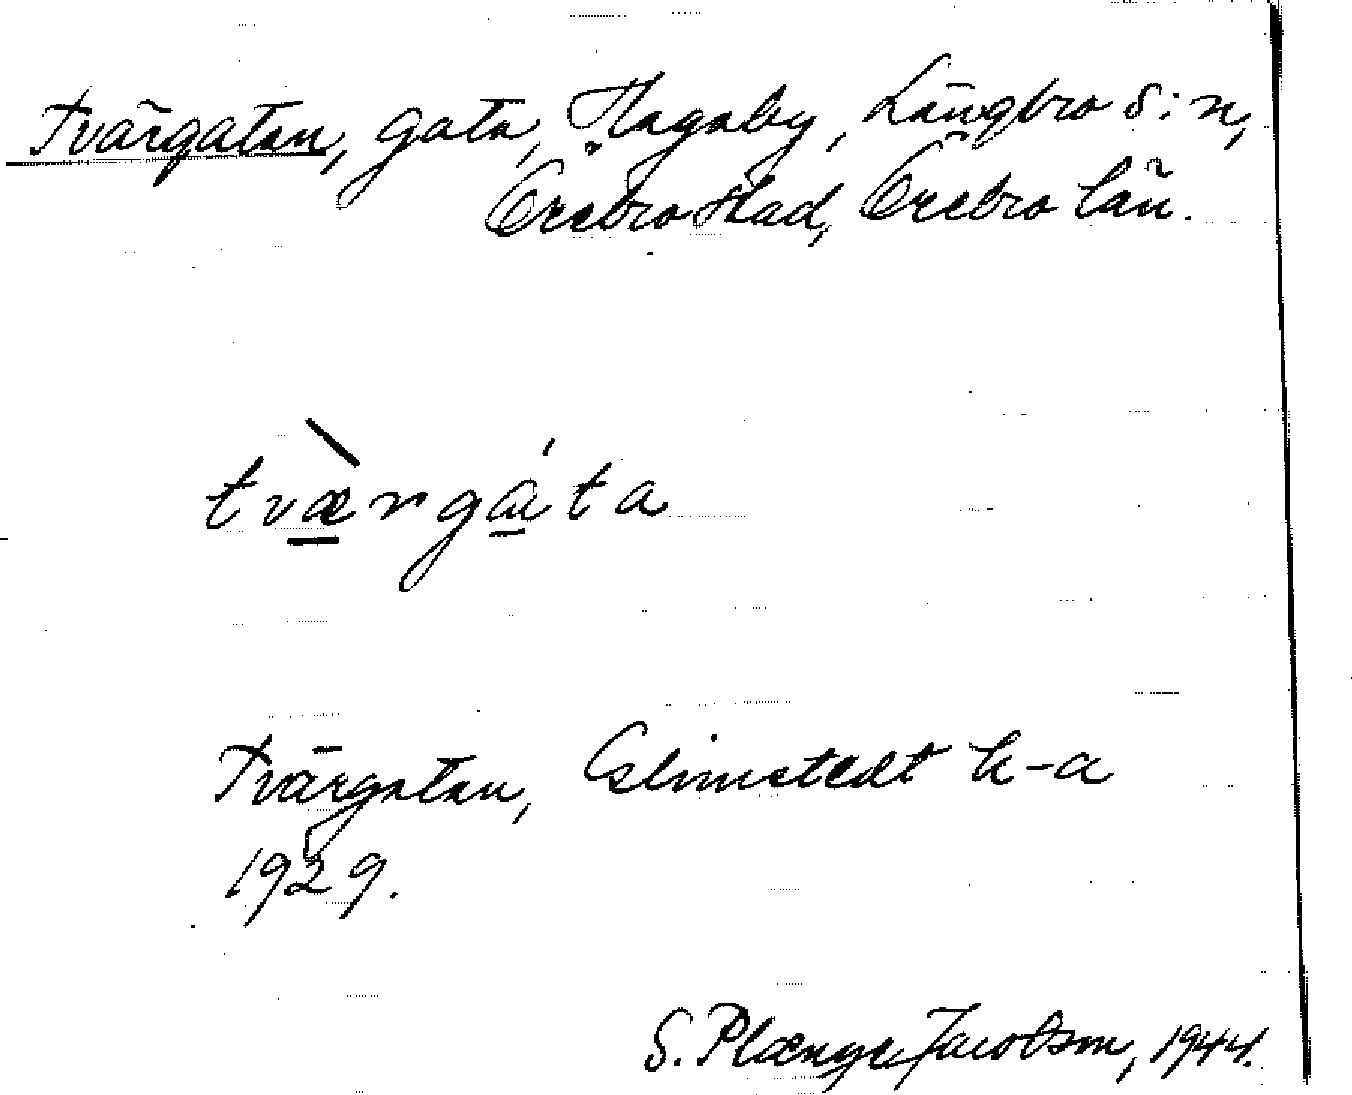 Tvärgatan, gata, Hagaby, Längbro s:n,
Örebro stad, Örebro län.
tværgata
Tvärgatan, Edmstedt k-a
1929.
S. Plænge Jacobson, 1944.